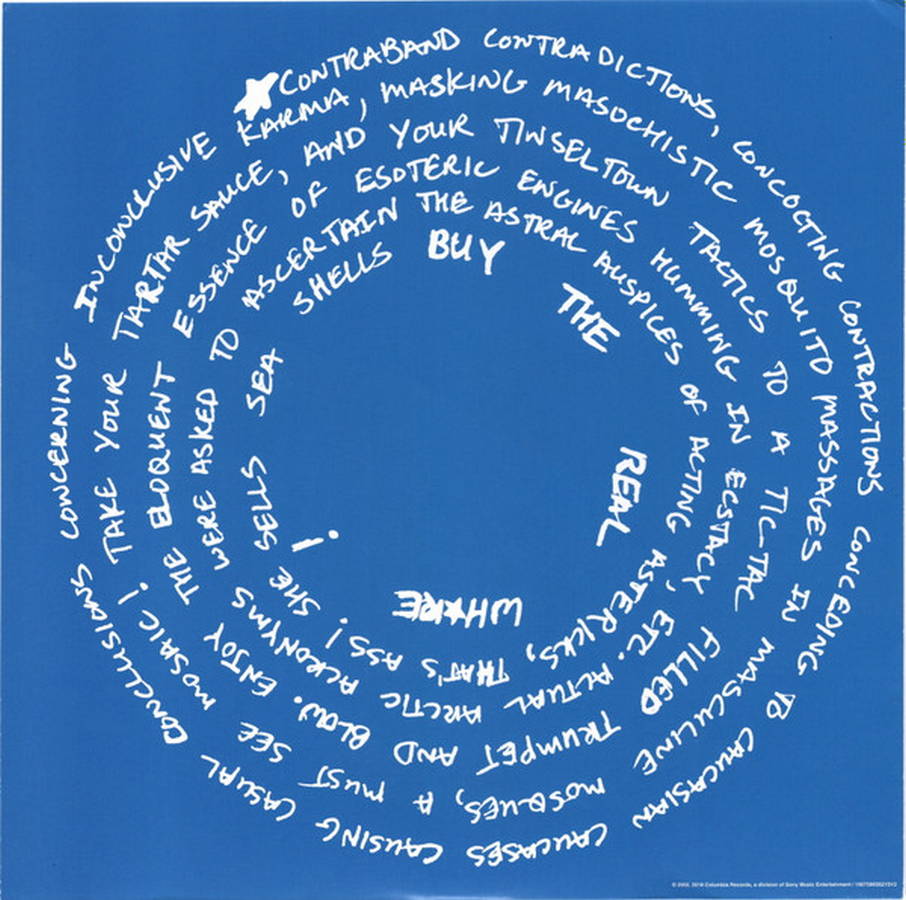 ★CONTRABAND CONTRADICTIONS, CONCOCTING CONTRACTIONS CONCEDING TO CAUCASIAN CAUCASES CAUSING CASUAL CONCLUSIONS CONCERNING INCONCLUSIVE
KARMA, MASKING MASOCHISTIC MOSQUITO MASSSAGES IN MASCULINE MOSQUES, A MUST SEE MOSAIC! TAKE YOUR TARTAR SAUCE,
AND YOUR TINSELTOWN TACTICS TO A TIC-TAL FILLED TRUMPET AND BLOW. ENJOY THE ELOQUENT ESSENCE
OF ESOTERIC ENGINES HUMMING IN ECSTACY, ETC. ACTUAL ARCTIC ACRONYMS WERE ASKED TO ASCERTAIN
THE ASTRAL AUSPICES OF ACTING ASTERICKS, THAT'S ASS! SHE SELLS SEA SHELLS
BUY THE REAL WH★RE!
Columbia Records, a division of Sony Music Entertainment /